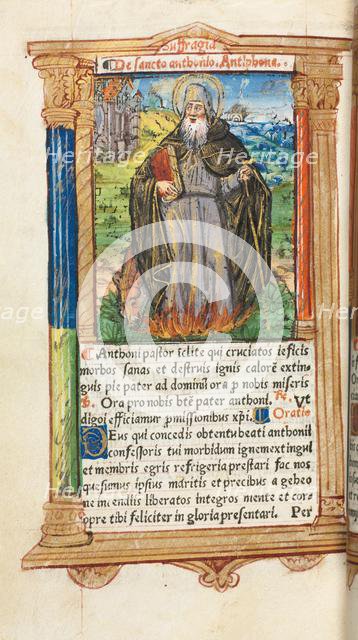 Suffragia
De sancto anthonio. Antiphona.
Anthoni pastor īclite qui cruciatos īeficis
morbos sanas et destruis ignis calorē extin-
guis pie pater ad dominū ora p nobis miseris
Ora pro nobis btē pater anthoni. Vt
digni efficiamur pmissionibus xpi. Oratio
Deus qui concedis obtentu beati anthonii
confessoris tui morbidum ignem extingui
et membris egris refrigeria prestari fac nos
quesumus ipsius meritis et precibus a gehen
ne incendiis liberatos integros mente et cor-
pore tibi feliciter in gloria presentari. Per
Heritage
Heritage
Heritage
Heritage
Heritage
Heritage